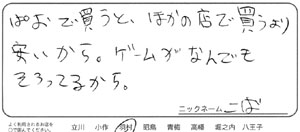 ぱおで買うと、ほかの店で買うより
安いから。ゲームがなんでも
そろってるから。
ニックネーム こば
よく利用されるお店を
○で囲んでください。
立川 小作 羽村 昭島 青梅 高幡 堀之内 八王子